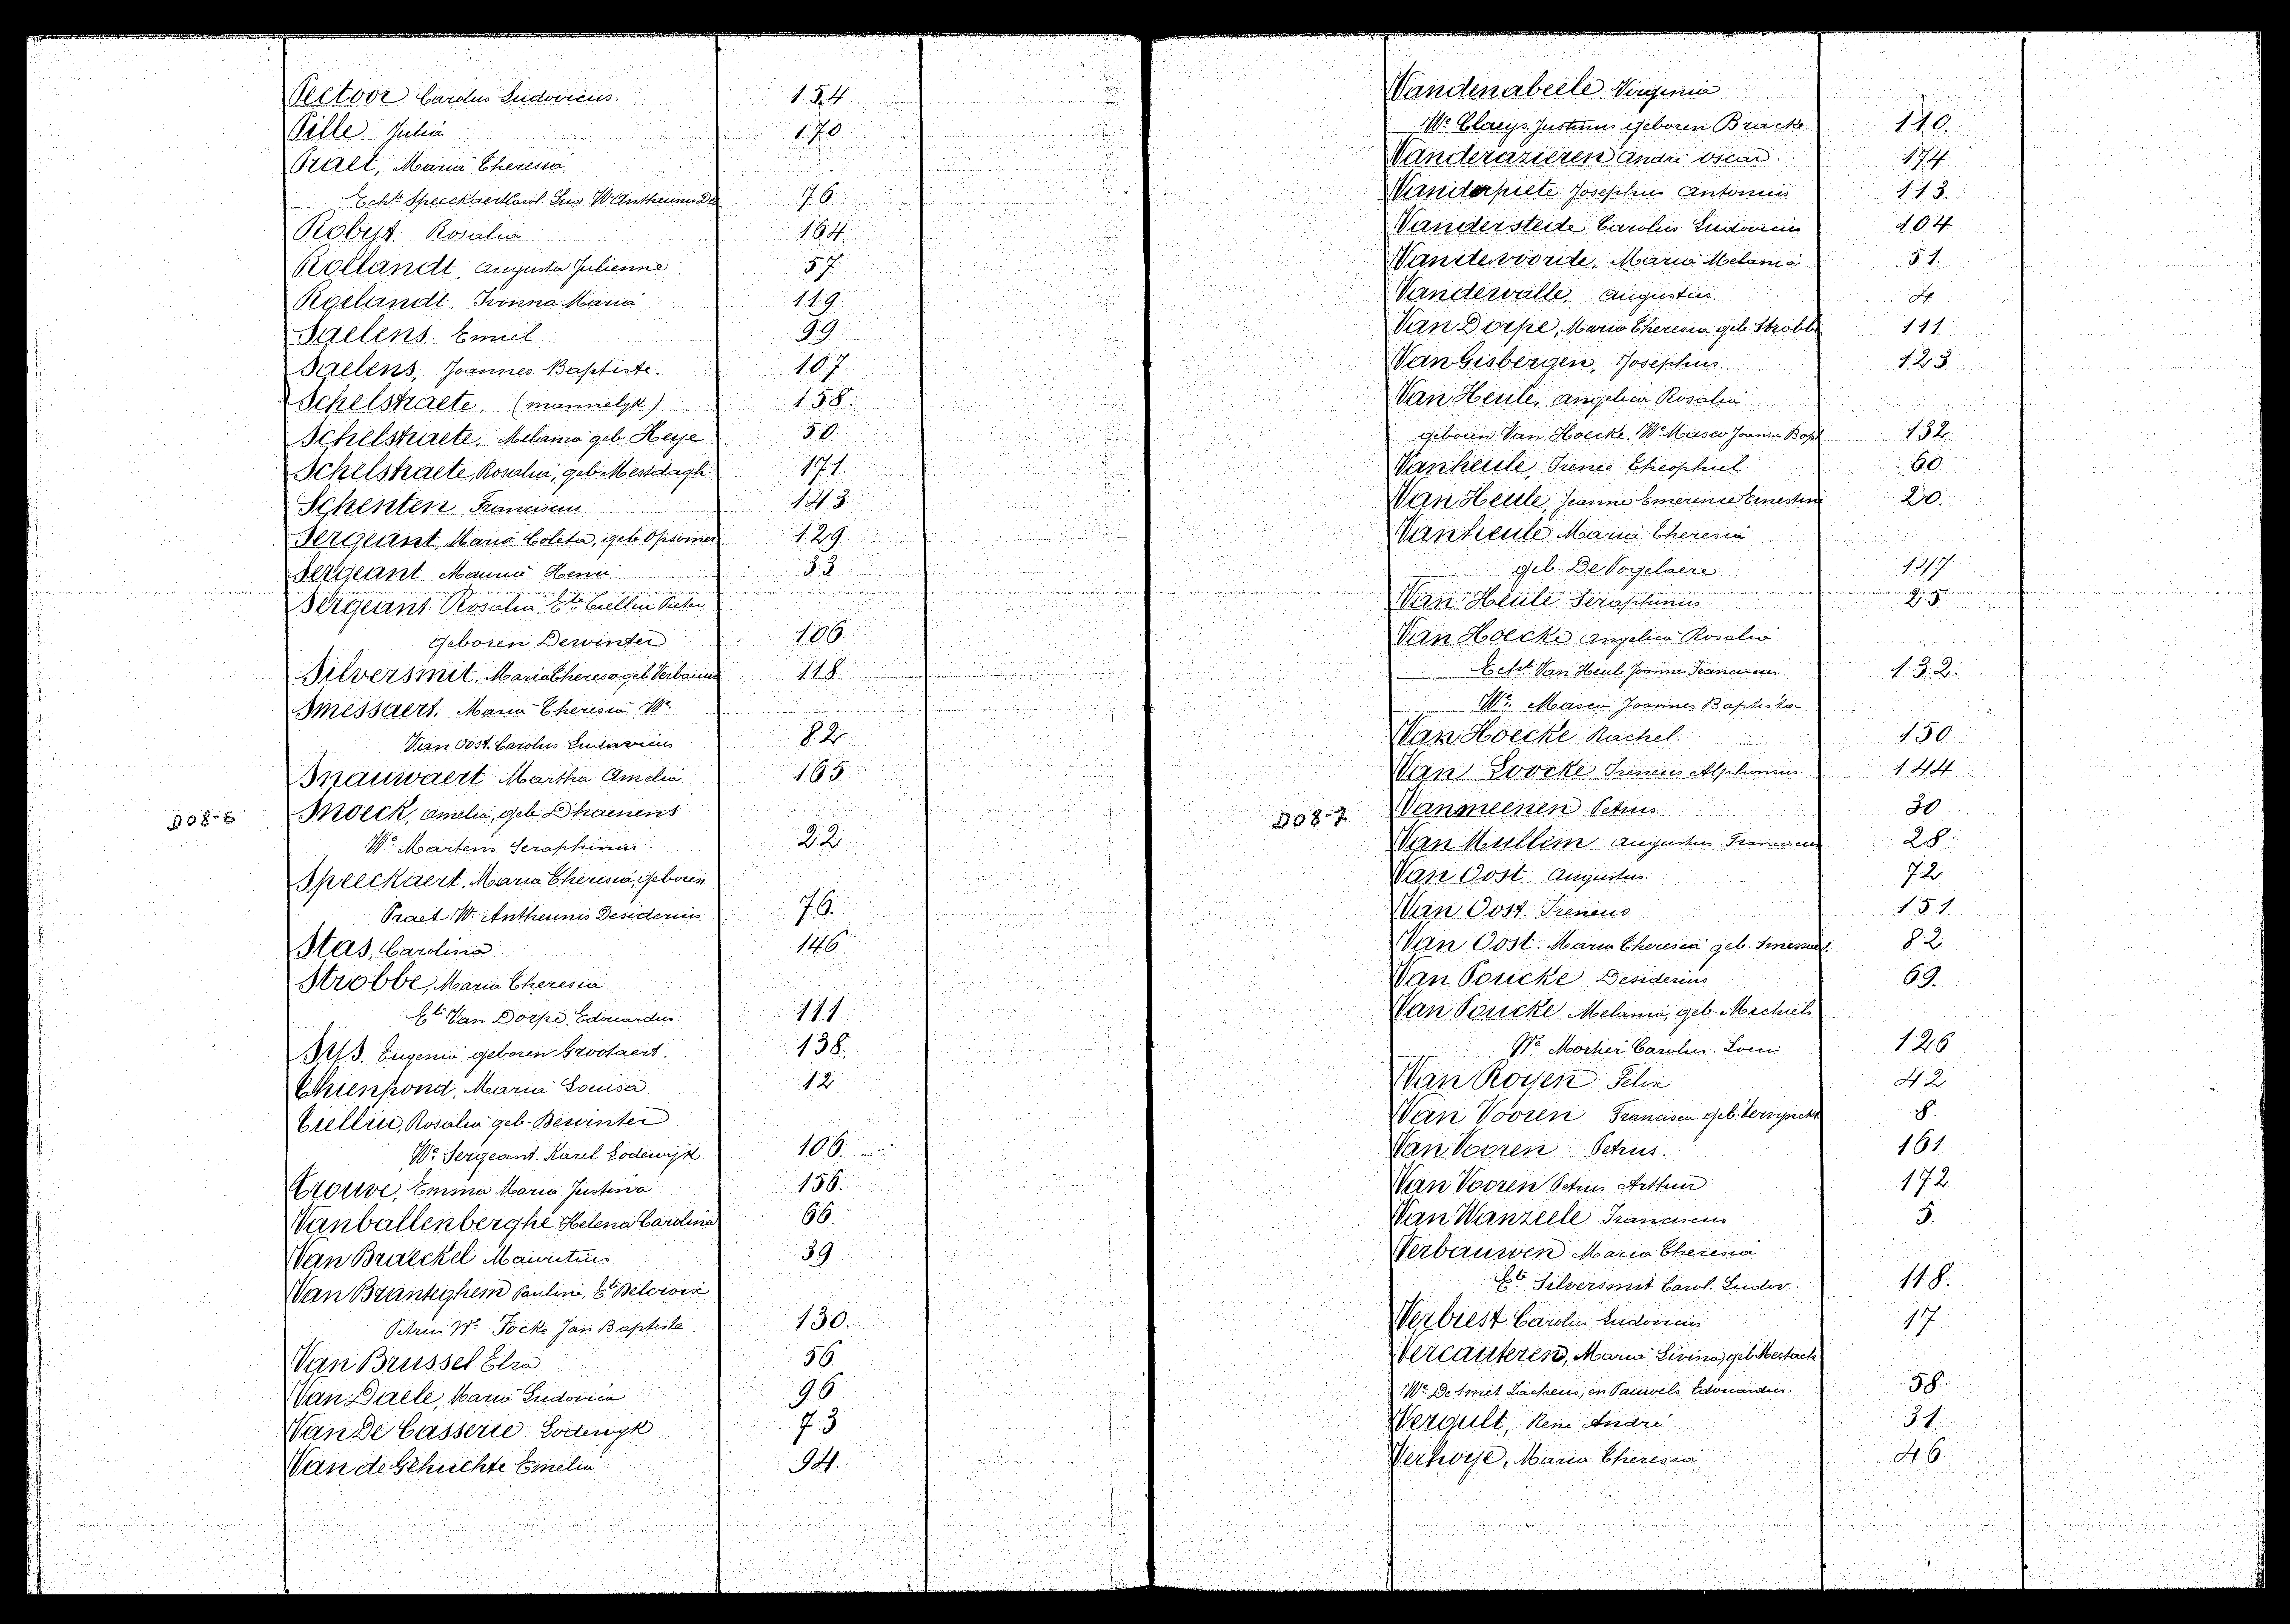 Pectoor Carolus Ludovicus. 154
Pille Julia 170
Praet, Maria Theresia,
Echte Speeckaert Karol. Lud. We Antheunis Des 76
Robyt. Rosalia 164.
Rollandt Augusta Julienne 57
Roelandt. Ivonna Maria 119
Saelens. Emiel 99
Saelens, Joannes Baptiste. 107
Schelstraete. (mannelyk) 158.
Schelstraete, Melania geb Heye 50.
Schelstraete, Rosalia, geb Mestdagh 171.
Schenten Franciscus 143
Sergeant, Maria Coleta, geb Opsomer 129
Sergeant Maurice Henri 33
Sergeant Rosalia Ete Cuellin Pieter
geboren Dewinter 106.
Silversmit. Maria Theresa geb Verbauwe 118
Smessaert. Maria Theresia We
Van Oost. Carolus Ludovicus 82
Snauwaert Martha Amelia 165
D08-6
Snoeck, Amelia, geb Dhaenens
We Martens Seraphinus 22
Speeckaert, Maria Theresia, geboren
Praet We Antheunis Desiderius 76.
Stas, Carolina 146
Strobbe, Maria Theresia
Ete Van Dorpe Edouardus. 111
Sys. Eugenia geboren Grootaert. 138.
Thienpond, Maria Louisa 12
Cuellin, Rosalia geb. Dewinter
We Sergeant. Karel Lodewijk 106.
Trouve, Emma Maria Justina 156.
Vanballenberghe Helena Carolina 66.
Van Braeckel Mauritius 39
Van Branteghem Pauline, Ete Delcroix
Petrus We Focke Jan Baptiste 130.
Van Brussel Elza 56
Van Daele, Maria Ludovica 96
Van De Casserie Lodewyk 73
Van de Gehuchte Emelia 94.
Vandenabeele Virginia
We Claeys Justinus geboren Bracke. 110.
Vanderazieren André Oscar 174
Vanderpiete Josephus Antonius 113.
Vanderstede Carolus Ludovicus 104
Vandevoorde, Maria Melania 51.
Vandewalle, Augustus. 4
Van Dorpe, Maria Theresia geb Strobbe 111
Van Gisbergen, Josephus. 123
Van Heule, Angelica Rosalia
geboren Van Hoecke. We Masco Joannes Bapt 132.
Vanheule, Irenee Theophiel 60
Van Heule, Jeanne Emerence Ernestine 20.
Vanheule Maria Theresia
geb. De Vogelaere 147
Van Heule Seraphinus 25
Van Hoecke Angelica Rosalia
Echte Van Heule Joannes Franciscus 132.
We Masco Joannes Baptista
Van Hoecke Rachel. 150
Van Loocke Ireneus Alphonsus. 144
D08-7
Vanmeenen Petrus 30
Van Mullem Augustus Franciscus 28.
Van Oost Augustus 72
Van Oost. Ireneus 151.
Van Oost. Maria Theresia geb. Smessaert. 82
Van Poucke Desiderius 69.
Van Poucke Melania, geb. Michiels
We Mochei Carolus. Louis 126
Van Royen Felix 42
Van Vooren Francisca geb. Vervynckt 8.
Van Vooren Petrus. 161
Van Vooren Petrus Arthur 172
Van Wanzeele Franciscus 5.
Verbauwen Maria Theresia
Ete Silversmit Carol. Ludov. 118.
Verbiest Carolus Ludovicus 17
Vercauteren, Maria Livina, geb Mestach
We De Smet Zacheus, en Pauwels Edouardus. 58.
Vergult, Rene André 31.
Verhoye, Maria Theresia 46